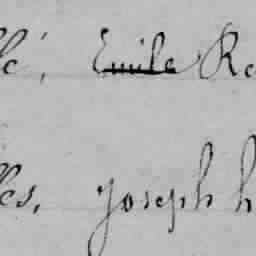 Emile Re
es, Joseph h